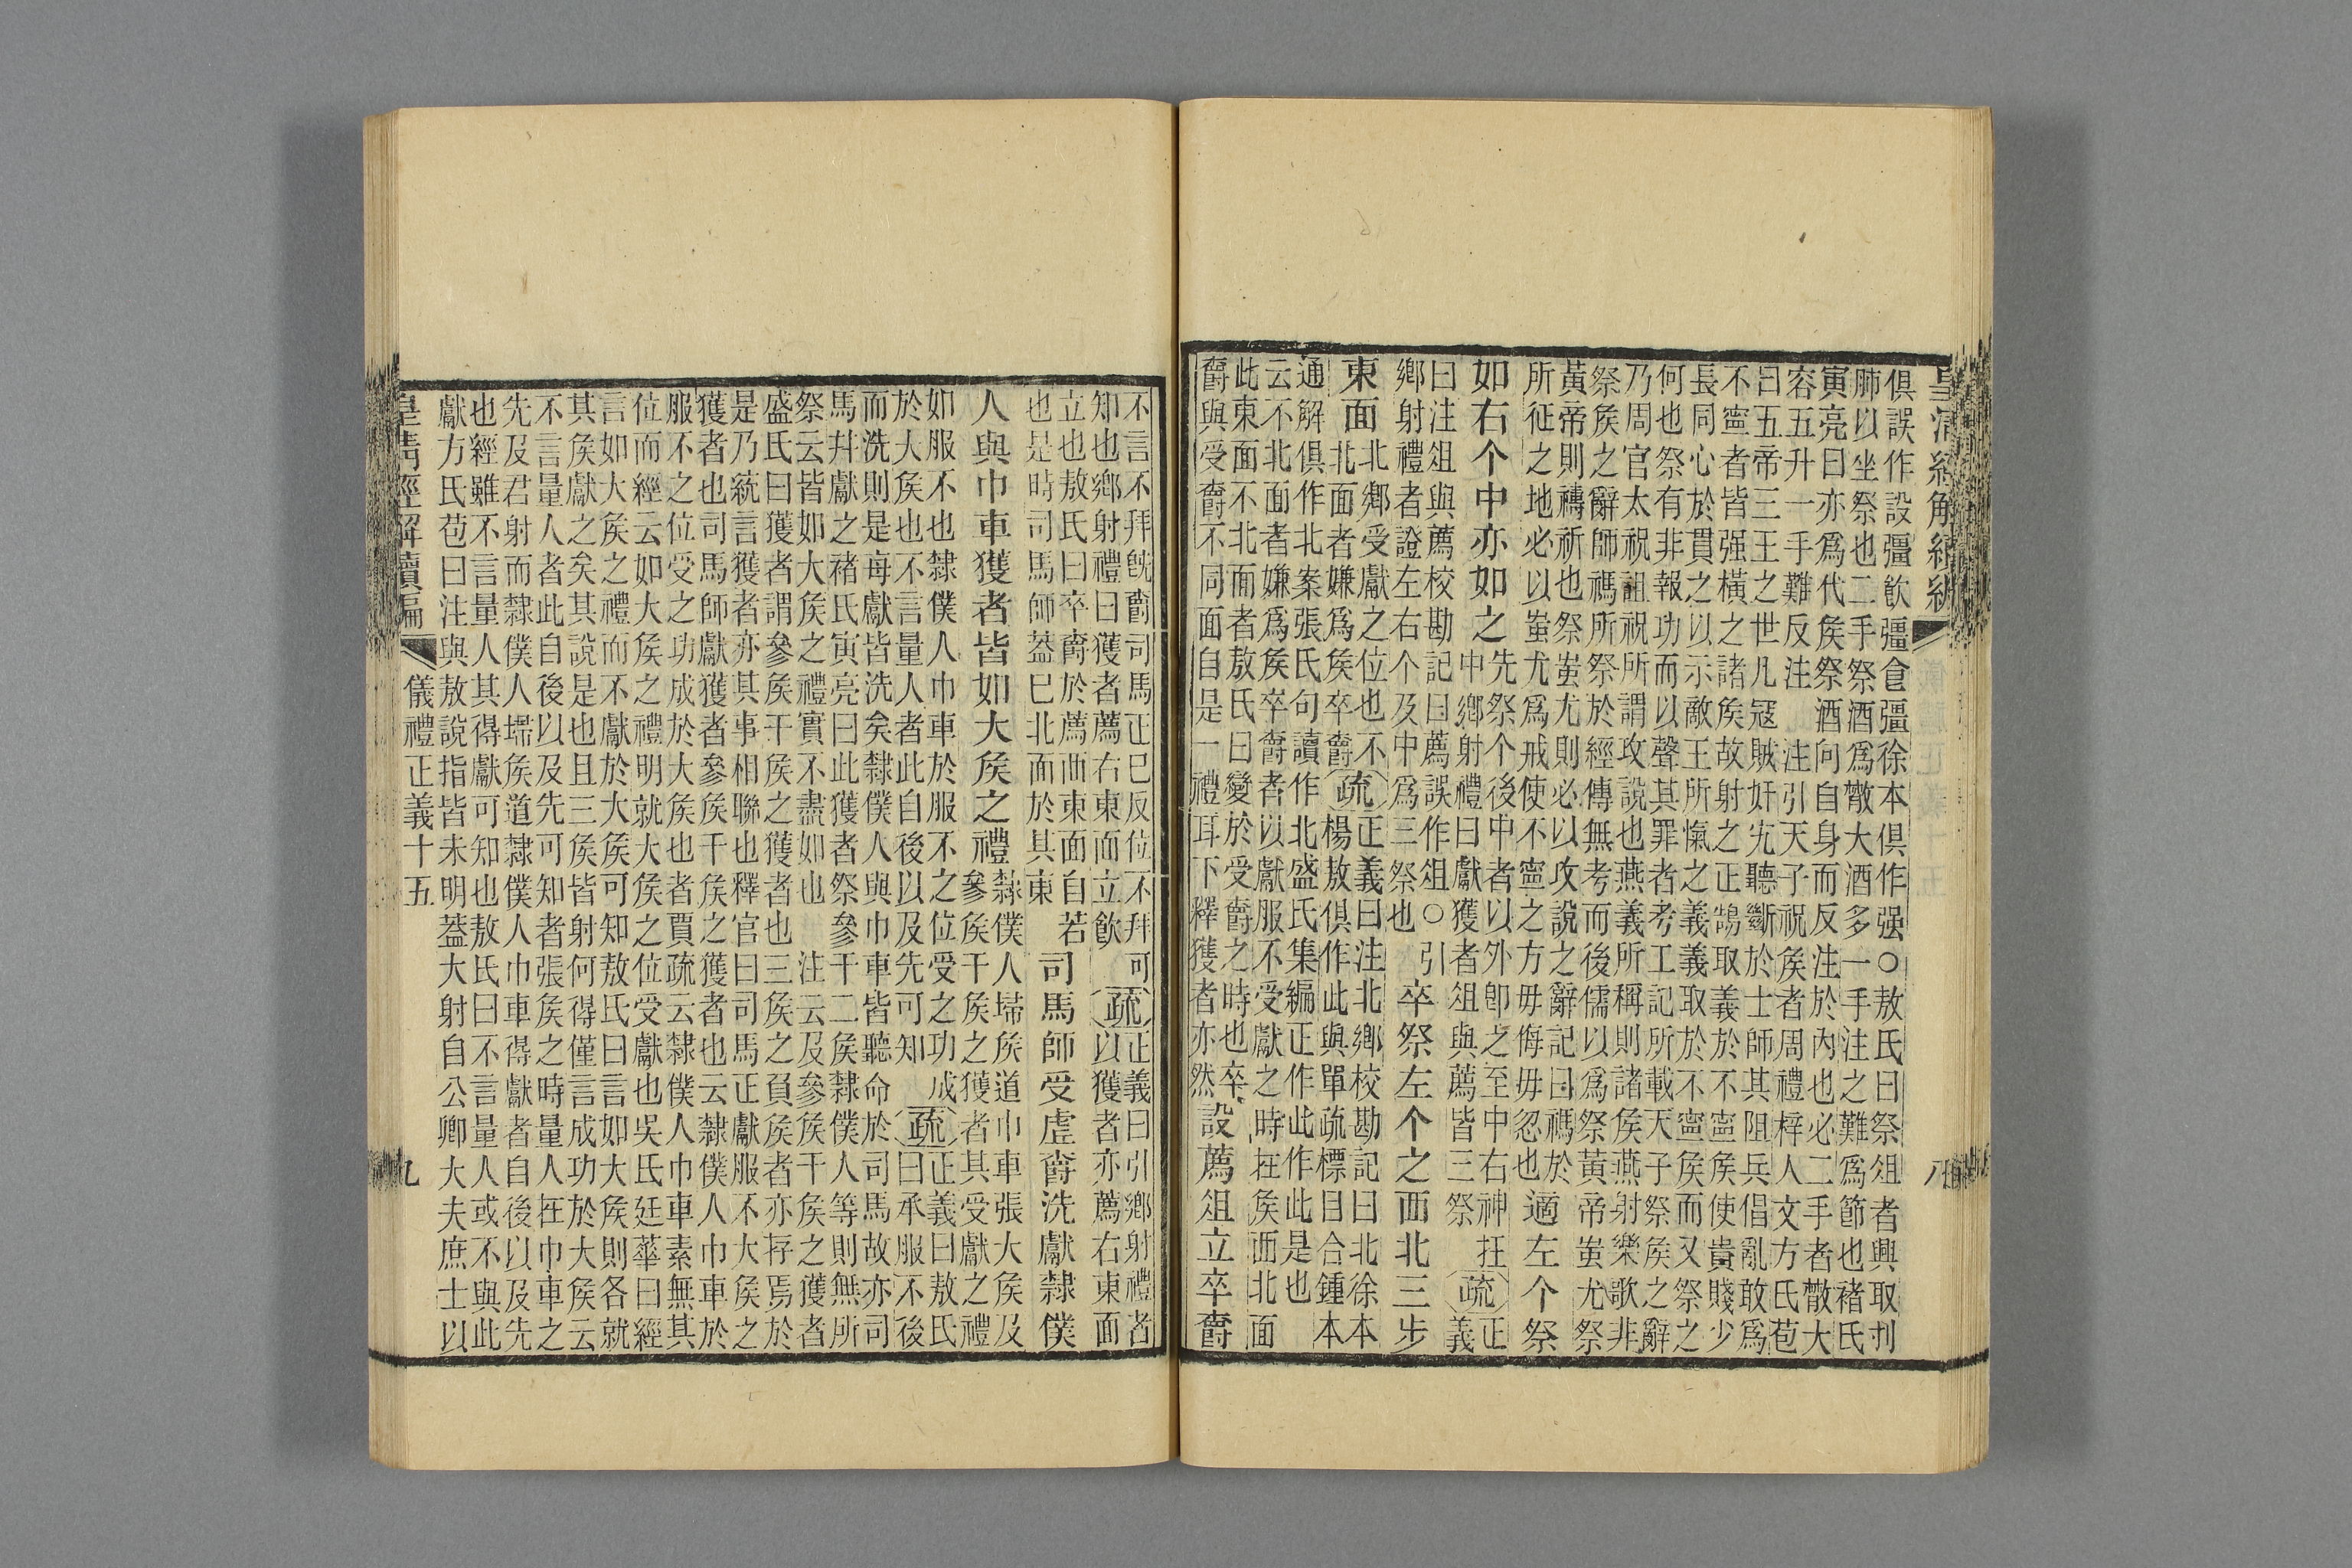 皇清經解續編 八
俱誤作設彊飮彊食彊徐本俱作强○敖氏曰祭俎者興取刋
肺以坐祭也二手祭酒爲散大酒多一手注之難爲節也褚氏
寅亮曰亦爲代矦祭酒向自身而反注於內也必二手者散大
容五升一手難反注 注引天子祝矦者周禮梓人文方氏苞
曰五帝三王之世凡冦賊奸宄聽斷於士師其阻兵倡亂敢爲
不寧者皆强橫之諸矦故射之正鵠取義於不寧矦使貴賤少
長同心於貫之以示敵王所愾之義義取於不寧矦而又祭之
何也祭有非報功而以聲其罪者考工記所載天子祭矦之辭
乃周官太祝詛祝所謂攻說也燕義所稱則諸矦燕射樂歌非
祭矦之辭師禡所祭於經傳無考而後儒以爲祭黃帝蚩尤祭
黃帝則禱祈也祭蚩尤則必以攻說之辭記曰禡於
所征之地必以蚩尤爲戒使不寧之方毋侮毋忽也
適左个祭
如右个中亦如之
先祭个後中者以外卽之至中右神在
中鄉射禮曰獻獲者俎與薦皆三祭
疏
正
義
曰注俎與薦校勘記曰薦誤作俎○引
鄉射禮者證左右个及中爲三祭也
卒祭左个之西北三步
東面
北鄉受獻之位也不
北面者嫌爲矦卒爵
疏
正義曰注北鄉校勘記曰北徐本
楊敖俱作此與單疏標目合鍾本
通解俱作北案張氏句讀作北盛氏集編正作此作此是也
云不北面者嫌爲矦卒爵者以獻服不受獻之時在矦西北面
此東面不北面者敖氏曰變於受爵之時也卒
爵與受爵不同面自是一禮耳下釋獲者亦然
設薦俎立卒爵
不言不拜旣爵司馬正已反位不拜可
知也鄉射禮曰獲者薦右東面立飮
疏
正義曰引鄉射禮者
以獲者亦薦右東面
立也敖氏曰卒爵於薦西東面自若
也是時司馬師葢已北面於其東
司馬師受虛爵洗獻隸僕
人與巾車獲者皆如大矦之禮
隸僕人埽矦道巾車張大矦及
參矦干矦之獲者其受獻之禮
如服不也隸僕人巾車於服不之位受之功成
於大矦也不言量人者此自後以及先可知
疏
正義曰敖氏
曰承服不後
而洗則是每獻皆洗矣隸僕人與巾車皆聽命於司馬故亦司
馬幷獻之褚氏寅亮曰此獲者祭參干二矦隸僕人等則無所
祭云皆如大矦之禮實不盡如也 注云及參矦干矦之獲者
盛氏曰獲者謂參矦干矦之獲者也三矦之負矦者亦存焉於
是乃統言獲者亦其事相聯也釋官曰司馬正獻服不大矦之
獲者也司馬師獻獲者參矦干矦之獲者也云隸僕人巾車於
服不之位受之功成於大矦也者賈疏云隸僕人巾車素無其
位而經云如大矦之禮明就大矦之位受獻也吳氏廷華曰經
言如大矦之禮而不獻於大矦可知敖氏曰言如大矦則各就
其矦獻之矣其說是也且三矦皆射何得僅言成功於大矦云
不言量人者此自後以及先可知者張矦之時量人在巾車之
先及君射而隸僕人埽矦道隸僕人巾車得獻者自後以及先
也經雖不言量人其得獻可知也敖氏曰不言量人或不與此
獻方氏苞曰注與敖說指皆未明葢大射自公卿大夫庶士以
皇清經解續編 儀禮正義十五 九